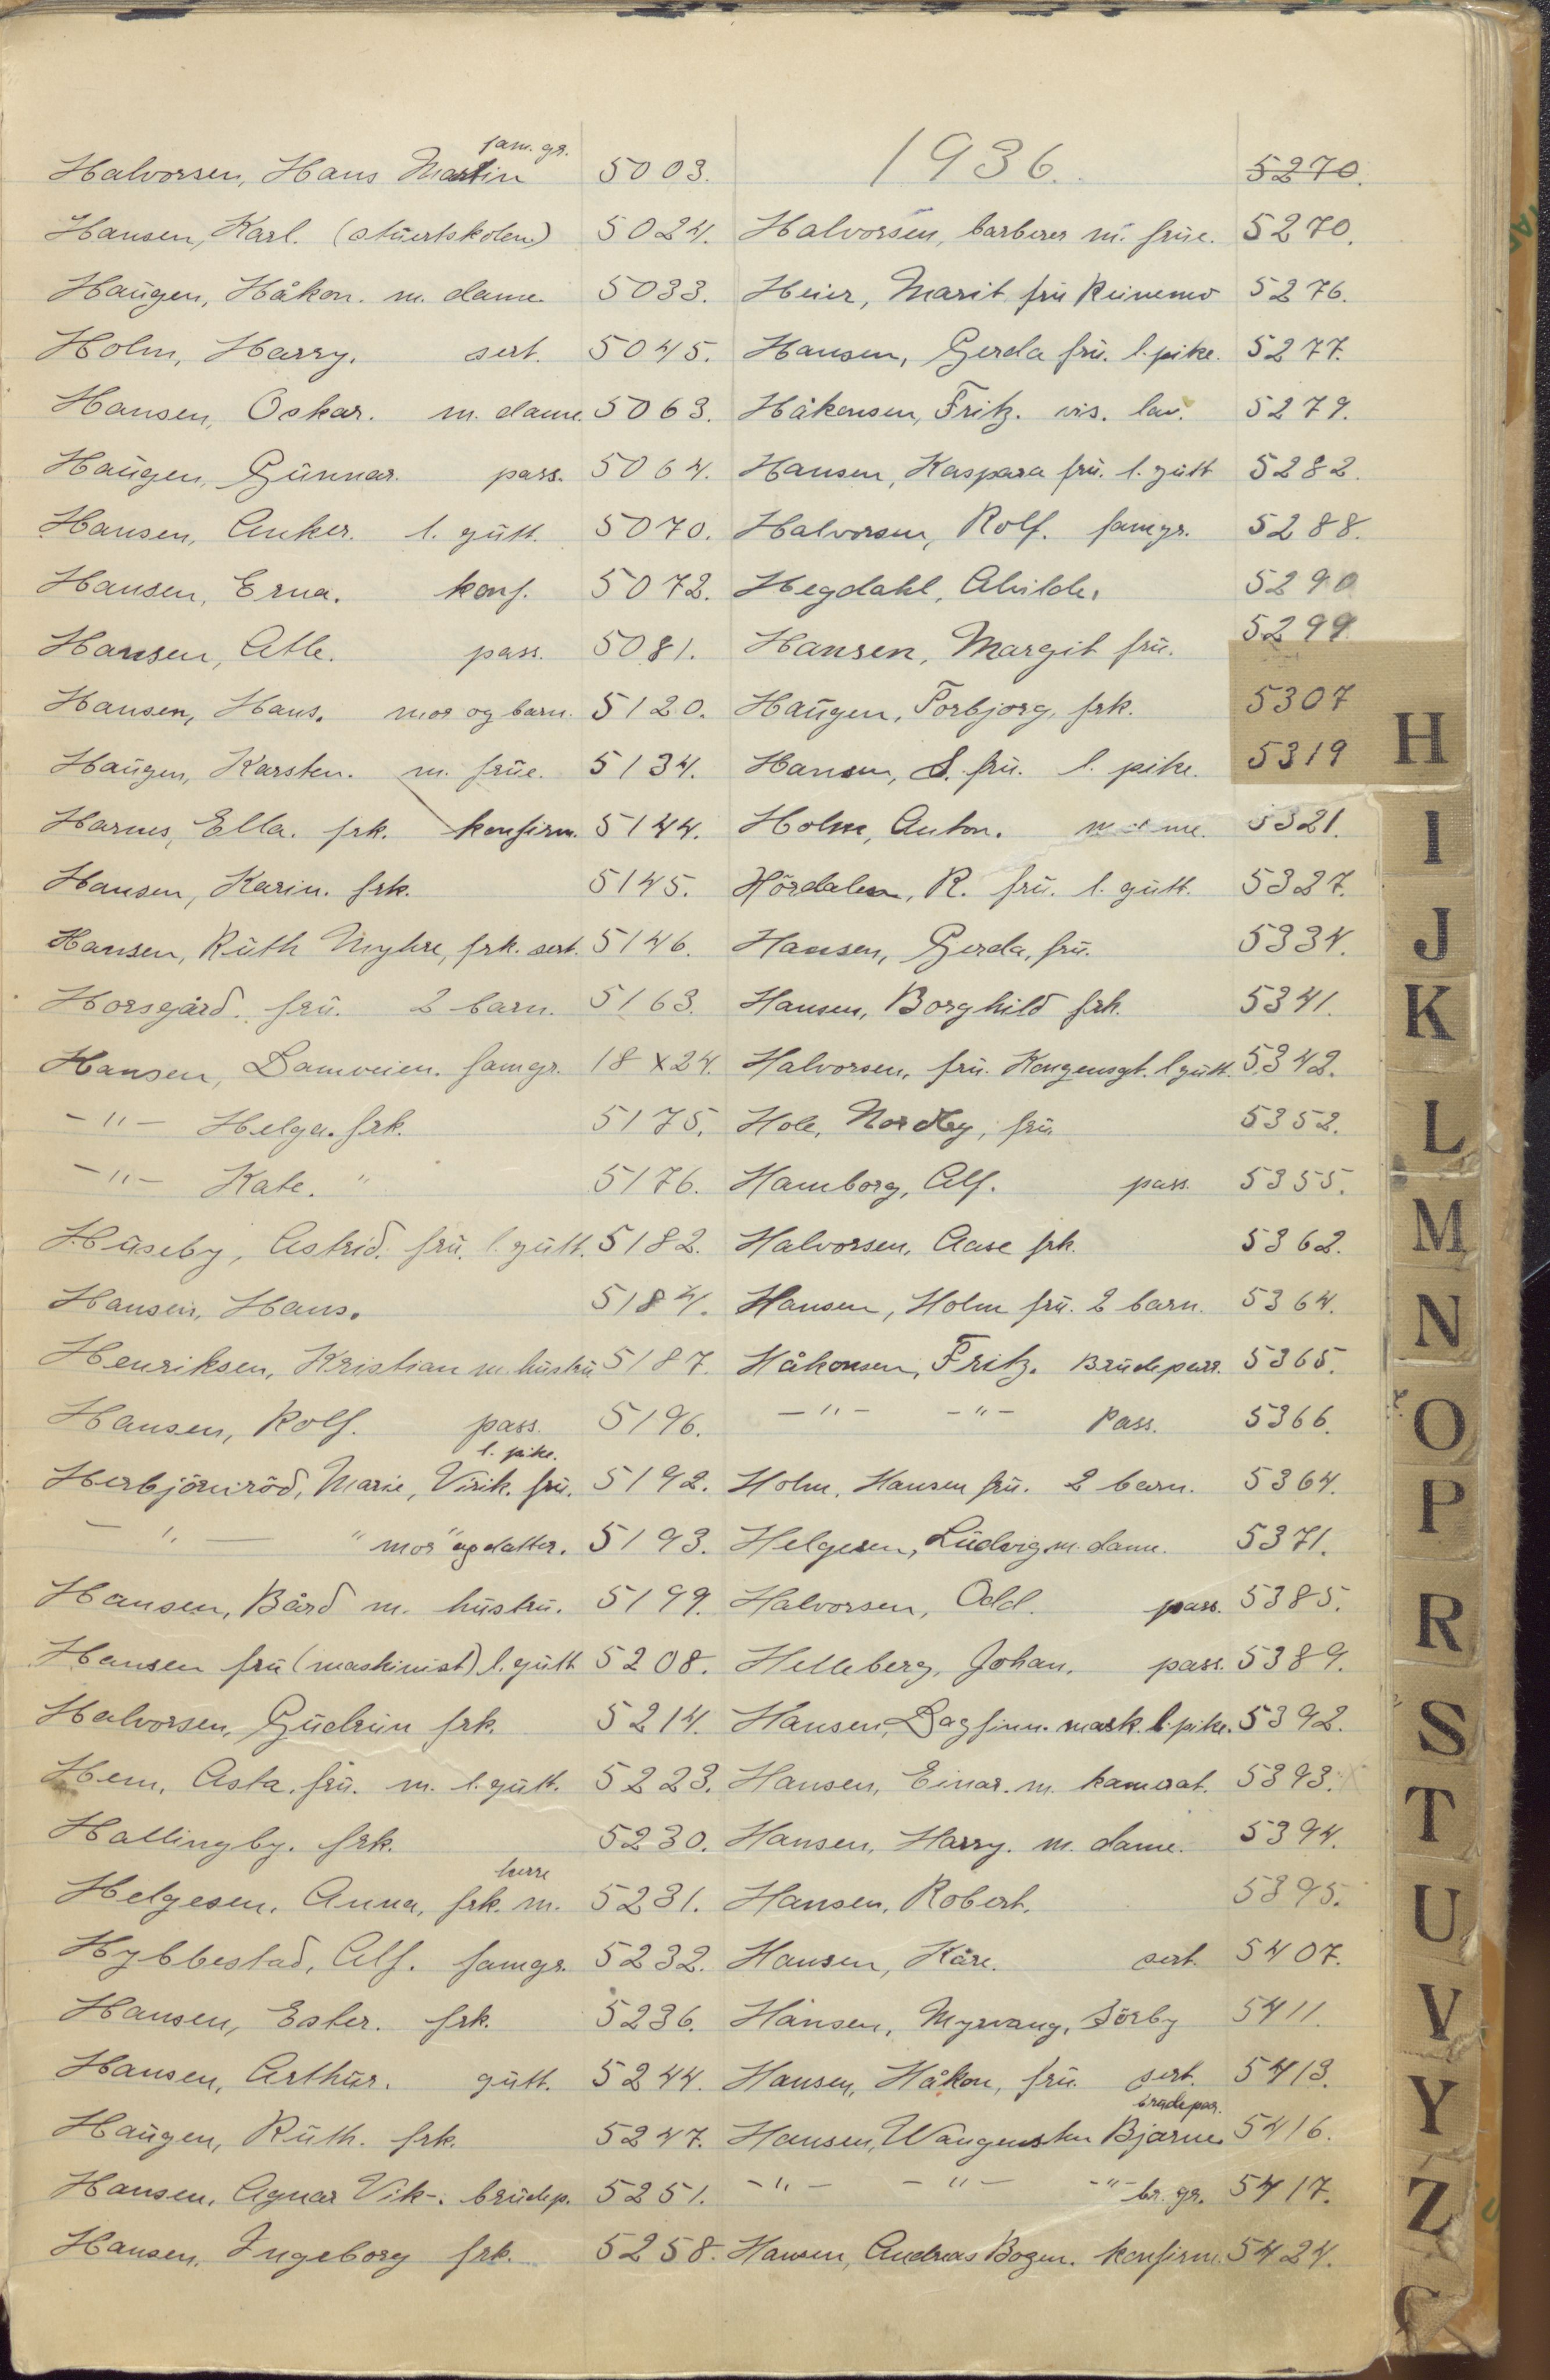 Halvorsen, Hans Martin fam. gr. 5003.
Hansen, Karl. (stuertskolen) 5024.
Haugen, Håkon. m. dame. 5033.
Holm, Harry. sert. 5045.
Hansen, Oskar. m. dame. 5063.
Haugen, Gunnar. pass. 5064.
Hansen, Anker. l. gutt. 5070.
Hansen, Erna. konf. 5072.
Hansen, Atle. pass. 5081.
Hansen, Hans. mor og barn. 5120.
Haugen, Karsten. m. frue. 5134.
Harnes, Ella. frk. konfirm. 5144.
Hansen, Karin. frk. 5145.
Hansen, Ruth Myhre, frk. sert. 5146.
Horsgård. fru. 2 barn. 5163.
Hansen, Damveien. famgr. 18 x 24.
-"- Helga. frk. 5175.
-"- Kate. " 5176.
Huseby, Astrid. fru. l. gutt. 5182.
Hansen, Hans. 5184.
Henriksen, Kristian m. hustru 5187.
Hansen, Rolf. pass. 5196.
Herbjörnröd, Marie, Virik. fru. l. pike. 5192.
-"- " mor " og datter. 5193.
Hansen, Bård m. hustru. 5199.
Hansen fru (maskinist) l. gutt 5208.
Halvorsen, Gudrun frk. 5214.
Hem, Asta, fru. m. l. gutt. 5223.
Hallingby. frk. 5230.
Helgesen, Anna, frk. m. herre 5231.
Hybbestad, Alf. famgr. 5232.
Hansen, Ester. frk. 5236.
Hansen, Arthur. gutt. 5244.
Haugen, Ruth. frk. 5247.
Hansen, Agnar Vik-. brudep. 5251.
Hansen, Ingeborg frk. 5258.
1936. 5270.
Halvorsen, barberer m. frue. 5270.
Heier, Marit fru Reinemo 5276.
Hansen, Gerda fru. l. pike. 5277.
Håkonsen, Fritz. vis. lav. 5279.
Hansen, Kaspara fru. l. gutt 5282.
Halvorsen, Rolf. famgr. 5288.
Hegdahl, Alvilde. 5290
Hansen, Margit fru. 5299
Haugen, Torbjorg, frk. 5307
Hansen, S. fru. l. pike. 5319
Holm, Anton. m. dame. 5321.
Hördalen, R. fru. l. gutt. 5327.
Hansen, Gerda, fru. 5334.
Hansen, Borghild frk. 5341.
Halvorsen, fru. Kongensgt. l gutt. 5342.
Hole, Nordby, fru 5352.
Hamborg, Alf. pass. 5355.
Halvorsen, Aase frk. 5362.
Hansen, Holm fru. 2 barn. 5364.
Håkonsen, Fritz. Brudeparr. 5365.
-"- -"- Pass. 5366.
Holm, Hansen fru. 2 barn. 5364.
Helgesen, Ludvig m. dame. 5371.
Halvorsen, Odd. pass. 5385.
Helleberg, Johan. pass. 5389.
Hansen, Dagfinn. mask. l. pike. 5392.
Hansen, Einar. m. kamerat. 5393.
Hansen, Harry. m. dame. 5394.
Hansen, Robert. 5395.
Hansen, Kåre. sert. 5407.
Hansen, Myrvang, Sörby 5411.
Hansen, Håkon, fru. sert. 5413.
Hansen, Wangensten Bjarne. brudepar. 5416.
-"- -"- -"- br. gr. 5417.
Hansen, Andreas Bogen. konfirm. 5424.
H
I
J
K
L
M
N
O
P
R
S
T
U
V
Y
Z